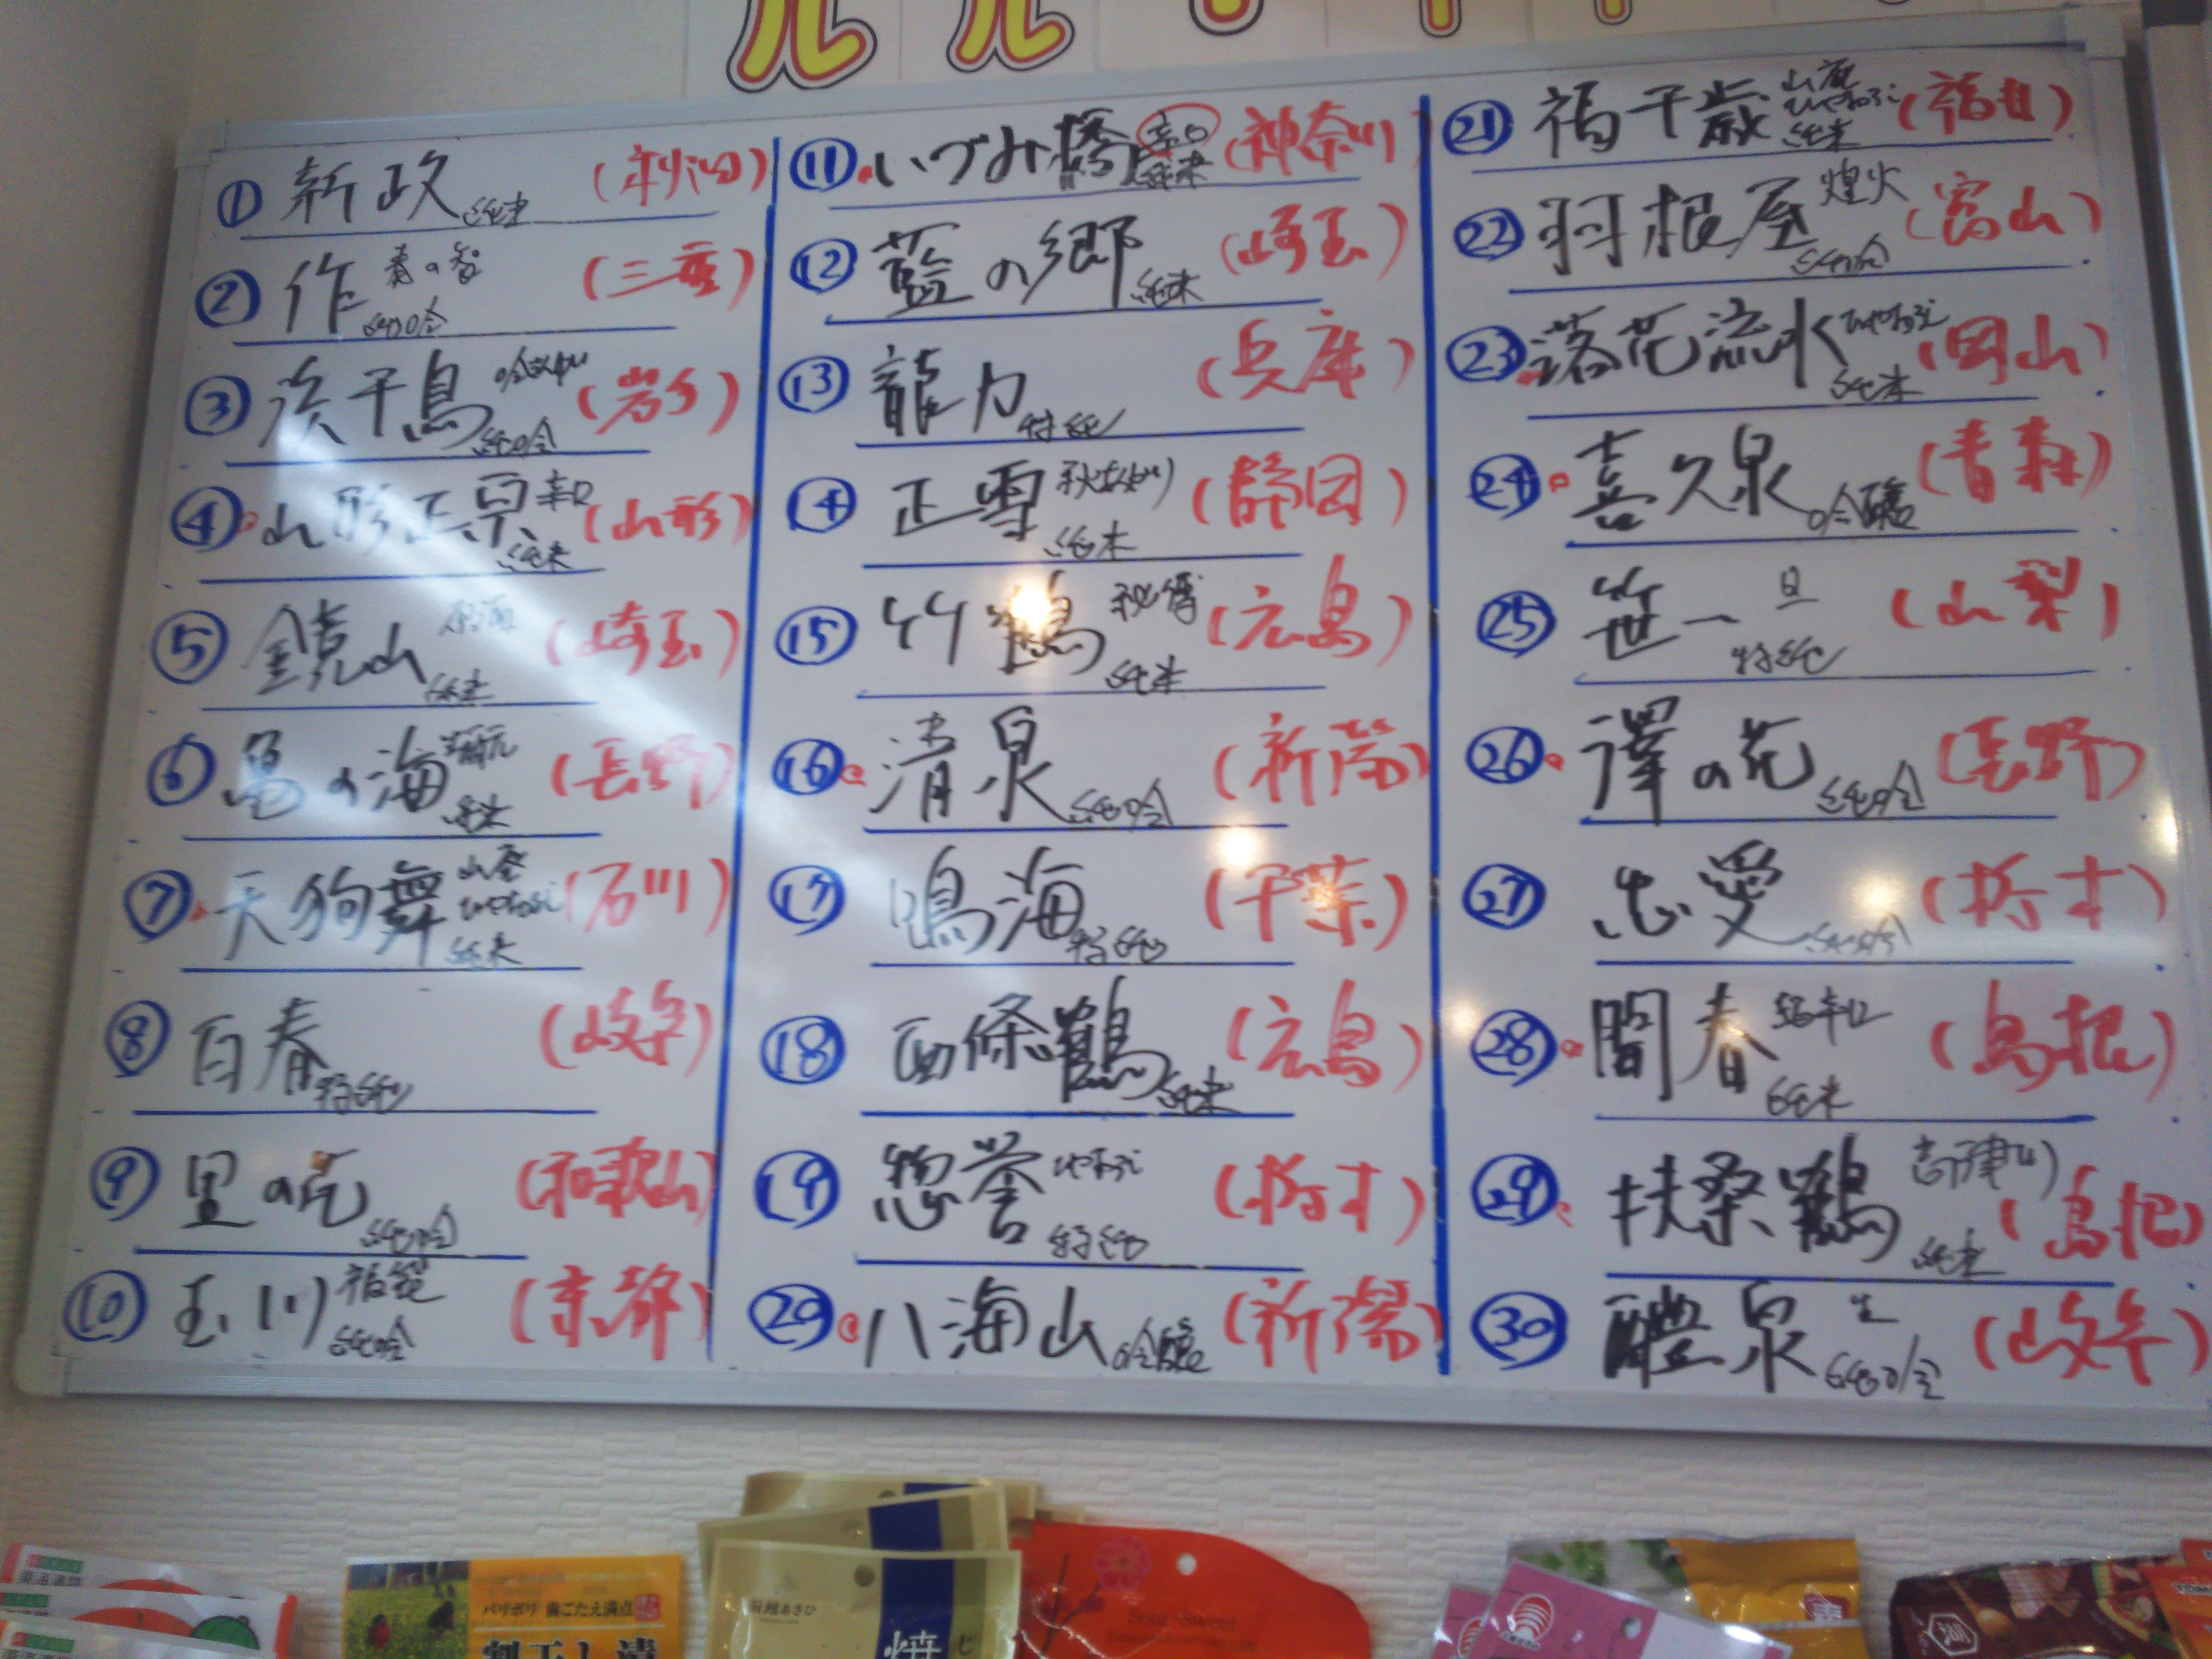 ① 新政 純米 (秋田)
② 作 奏の智 純吟 (三重)
③ 浜千鳥 吟ぎんが 純吟 (岩手)
④ 山形正宗 辛口 純米 (山形)
⑤ 鏡山 原酒 純米 (埼玉)
⑥ 亀の海 純米 (長野)
⑦ 天狗舞 山廃 ひやおろし 純米 (石川)
⑧ 百春 特純 (岐阜)
⑨ 里の花 純吟 (和歌山)
⑩ 玉川 福袋 純吟 (京都)
⑪ いづみ橋 辛口 純米 (神奈川)
⑫ 藍の郷 純米 (埼玉)
⑬ 龍力 特純 (兵庫)
⑭ 正雪 秋あがり 純米 (静岡)
⑮ 竹鶴 秘傳 純米 (広島)
⑯ 清泉 純吟 (新潟)
⑰ 鳴海 特純 (千葉)
⑱ 西條鶴 純米 (広島)
⑲ 惣誉 ひやおろし 特純 (栃木)
⑳ 八海山 吟醸 (新潟)
㉑ 福千歳 山廃 ひやおろし 純米 (福井)
㉒ 羽根屋 煌火 純吟 (富山)
㉓ 落花流水 ひやおろし 純米 (岡山)
㉔ 喜久泉 吟醸 (青森)
㉕ 笹一 旦 特純 (山梨)
㉖ 澤の花 純吟 (長野)
㉗ 忠愛 (栃木)
㉘ 開春 超辛口 純米 (島根)
㉙ 扶桑鶴 高津川 純米 (島根)
㉚ 醴泉 生 純吟 (岐阜)
パリポリ 歯ごたえ満点
割干し漬
函館あさひ
焼
Sour Sweet